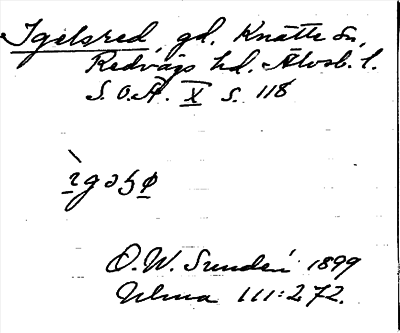 Igelsred, gd. Knätte sn,
Redvägs hd. Älvsb. l.
S.O.Ä. X s. 118
O.W. Sundén 1899
Ulma 111:272.